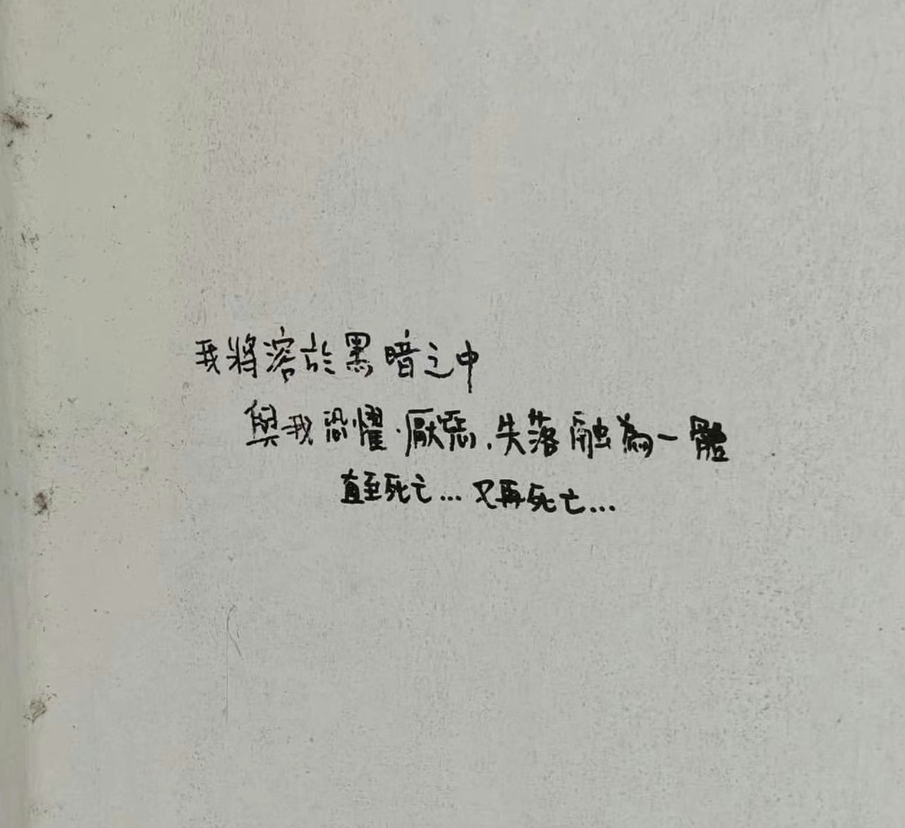 我將溶於黑暗之中
與我恐懼.厭惡.失落融為一體
直至死亡...又再死亡...